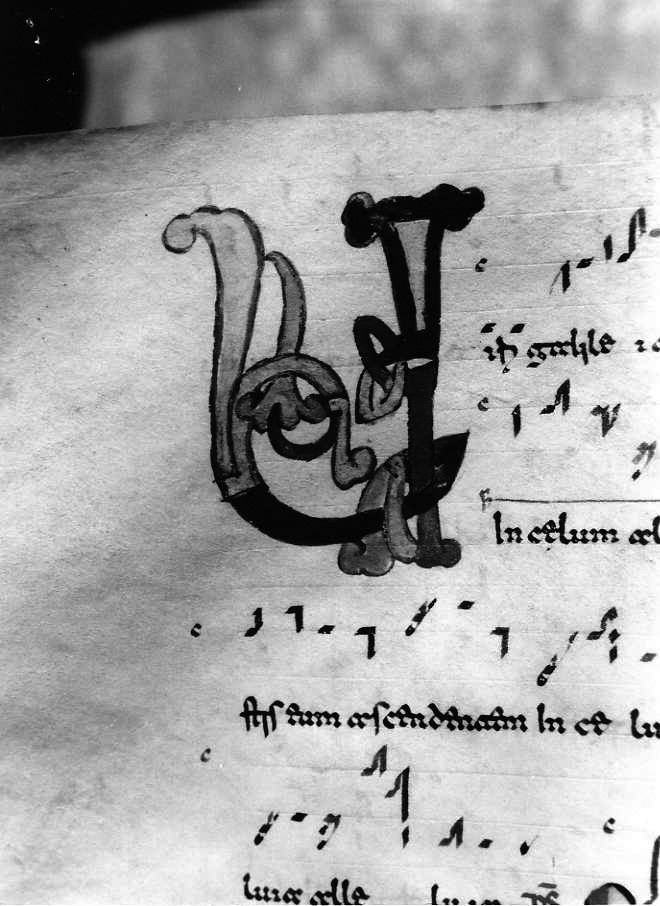 Viri galile
In celum al
stis eum ascendentem In ce lu
luia alle luia Ps